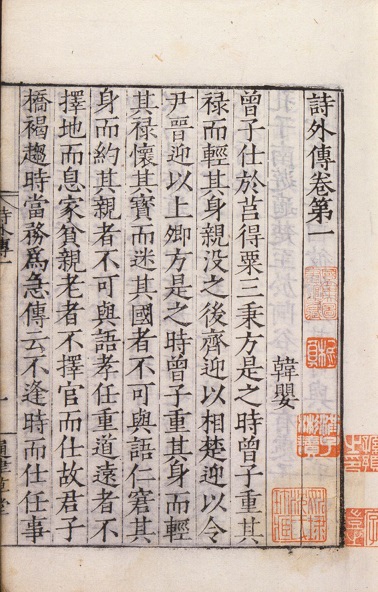 詩外傳卷第一
韓嬰
曾子仕於莒得粟三秉方是之時曾子重其
禄而輕其身親没之後齊迎以相楚迎以令
尹晉迎以上卿方是之時曾子重其身而輕
其禄懷其寳而迷其國者不可與語仁窘其
身而約其親者不可與語孝任重道遠者不
擇地而息家貧親老者不擇官而仕故君子
橋褐趨時當務爲急傳云不逢時而仕任事